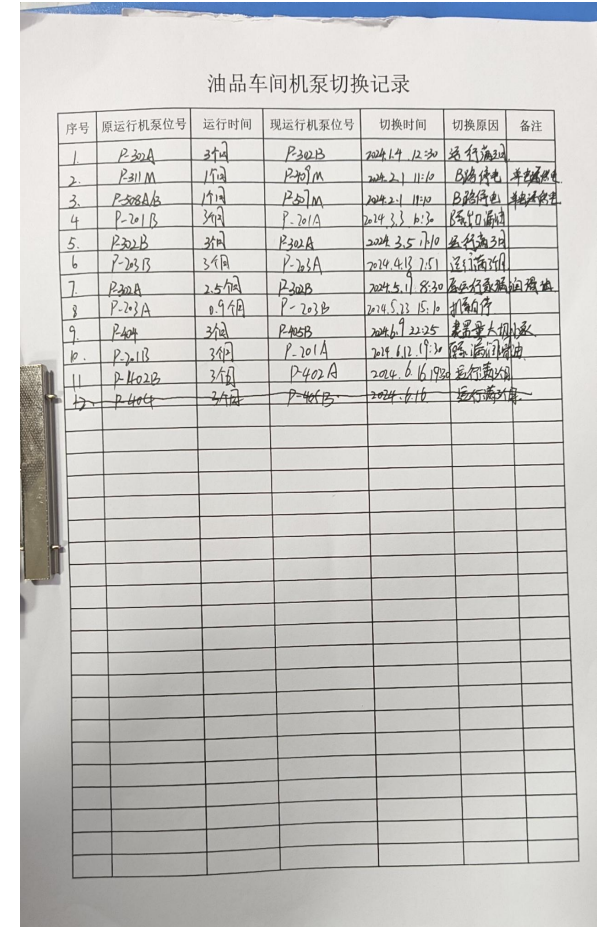 油品车间机泵切换记录
序号 原运行机泵位号 运行时间 现运行机泵位号 切换时间 切换原因 备注
1 P-302A 3个月 P-302B 2024.1.4 12:30 运行满3月
2. P-311M 1个月 2024.2.1 11:10 B路停电
3. P-508A/B 1个月 P-507M 2024.2.1 11:10 B路停电
4 P-201B 3个月 P-201A 2024.3.3
5. P-302B 3个月 P-302A 2024.3.5 运行满3月
6 P-203B 3个月 P-203A 2024.4.13 7:51 运行满3个月
7. P-302A 2.5个月 P-302B 2024.5.19 8:30
8 P-203A 0.9个月 P-203B 2024.5.23 15:10
9. P-404 3个月 P-405B 2024.6.9 22:25
10. P-201B 3个月 P-201A 2024.6.12 19:30
11 P-402B 3个月 P-402A 2024.6.16 1930 运行满3个月
12. P-404 3个月 P-405B 2024.6.16 运行满3个月